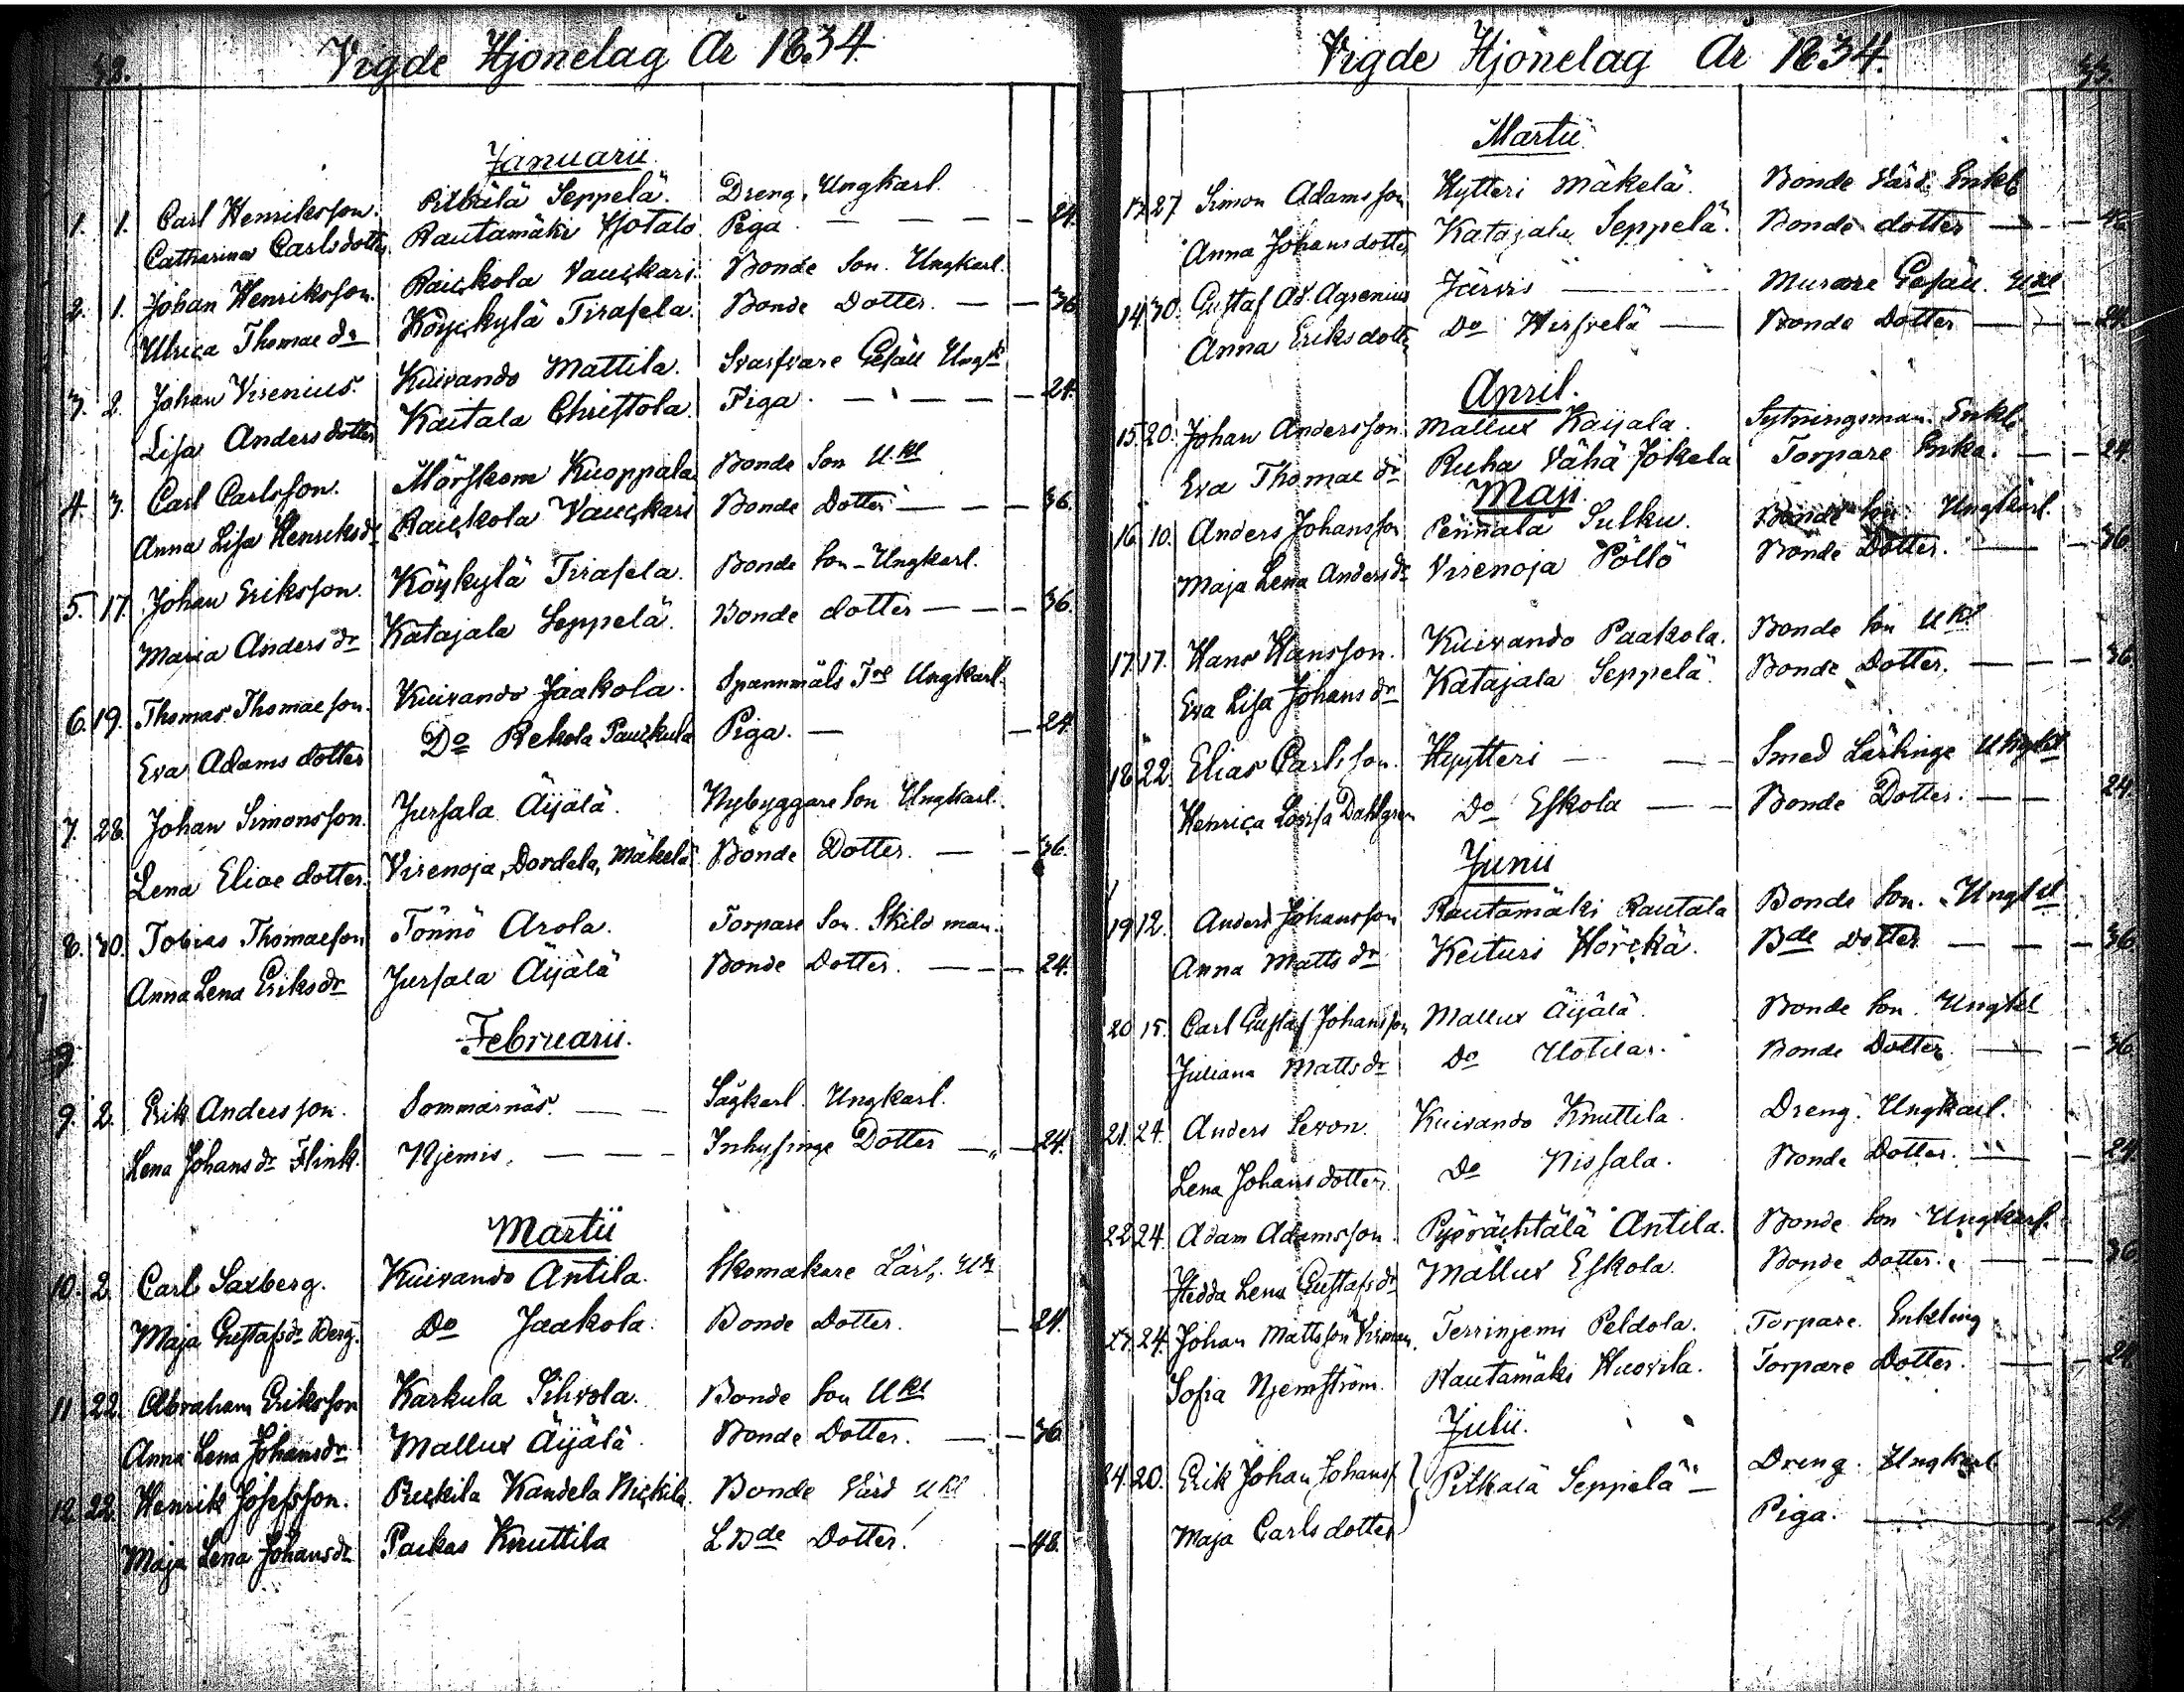 Vigde Hjonelag År 1834.
Januarii.
1. 1. Carl Henriksson. Pitkälä Seppelä. Dreng, Ungkarl.
Catharina Carlsdotter Rautamäki Hjotato Piga — — — — 24.
2. 1. Johan Henriksson. Rauskola Vauskari Bonde Son. Ungkarl.
Ulrica Thomae dr Köyskylä Tirasela Bonde Dotter. — — 36
3. 2. Johan Virenius. Kuivando Mattila. Svarfvare Gesäll Ungk
Lisa Andersdotter Kaitala Christola Piga. — — — — 24.
4. 3. Carl Carlsson. Mörskom Kuoppala Bonde Son Ukl
Anna Lisa Henriksdr Rauskola Vauskari Bonde Dotter — — 36.
5. 17. Johan Eriksson. Köykylä Tirasela. Bonde Son - Ungkarl.
Maria Anders dr Katajala Seppelä. Bonde dotter — — 36.
6. 19. Thomas Thomaeson. Kuivando Jaakola. Spannmåls Ungkarl.
Eva Adams dotter Do Rekola Pauskula Piga. — — 24.
7. 28. Johan Simonsson. Jursala Äijälä. Nybyggare Son Ungkarl.
Lena Eliae dotter. Virenoja, Dordela, Mäkelä Bonde Dotter. — — 36.
8. 30. Tobias Thomaeson Tönnö Arola. Torpare Son. Skild man.
Anna Lena Eriksdr Jursala Äijälä Bonde Dotter. — — — 24.
Februarii.
9
9. 2. Erik Andersson. Sommarnäs. — — Sågkarl. Ungkarl.
Lena Johans dr Flink. Njemis. — — — Inhysinge Dotter — — 24.
Martii
10. 2. Carl Saxberg. Kuivando Antila. Skomakare Lärl.
Maja Gustafsdr Berg. Do Jaakola. Bonde Dotter. — 24.
11 22. Abraham Eriksson Karkula Sihvola. Bonde Son Ukl
Anna Lena Johansdr Mallux Äijälä. Bonde Dotter. — — 36
12. 22. Henrik Josefsson. Ruskila Kandela Niskila. Bonde Värd Ukl
Maja Lena Johansdr Paskas Knuttila LBde Dotter. — 48.
Vigde Hjonelag År 1834.
33
Martii
13. 27 Simon Adamsson Hytteri Mäkelä. Bonde Värd. Enkl
Anna Johansdotter Katajala Seppelä. Bonde dotter — — 48
14. 30. Gustaf Ad. Agrenius Järvis — — Murare Gesäll. Ukl
Anna Eriksdotter Do Hirsvelä — Bonde Dotter — — 24.
April.
15. 20. Johan Andersson. Mallux Kaijala. Sytningsman Enkl.
Eva Thomae dr Ruha Vähä Jokela Torpare Enka. — — 24
Maji.
16. 10. Anders Johansson Pennala Sulku. Bonde Son Ungkarl.
Maja Lena Andersdr Virenoja Pöllö Bonde Dotter. — — 36
17. 17. Hans Hansson. Kuivando Paakola. Bonde Son Ukl
Eva Lisa Johans dr Katajala Seppelä. Bonde Dotter. — — — 36.
18 22. Elias Carlsson. Hyytteri — — Smed Lärlinge Ungkl
Henrica Lovisa Dahlgren Do Eskola — — Bonde Dotter. — — 24.
Junii
19 12. Anders Johansson Rautamäki Rautala Bonde Son. Ungkl
Anna Matts dr Keituri Hörskä. Bde Dotter — — — 36
20 15. Carl Gustaf Johansson Mallux Äijälä. Bonde Son. Ungkl
Juliana Mattsdr Do Uotila. Bonde Dotter. — — 36
21. 24. Anders Levon. Kuivando Knuttila. Dreng. Ungkarl.
Lena Johans dotter. Do Nissala. Bonde Dotter. — — 24
22 24. Adam Adamsson. Pyörähtälä Antila. Bonde Son Ungkarl.
Hedda Lena Gustafsdr Mallux Eskola. Bonde Dotter. — — 36
23. 24. Johan Mattsson Virman. Terrinjemi Peldola. Torpare. Enkling
Sofia Njemström. Rautamäki Huovila. Torpare Dotter. — — 24
Julii.
24. 20. Erik Johan Johanss } Pitkälä Seppelä — Dreng. Ungkarl
Maja Carls dotter Piga. — — 24